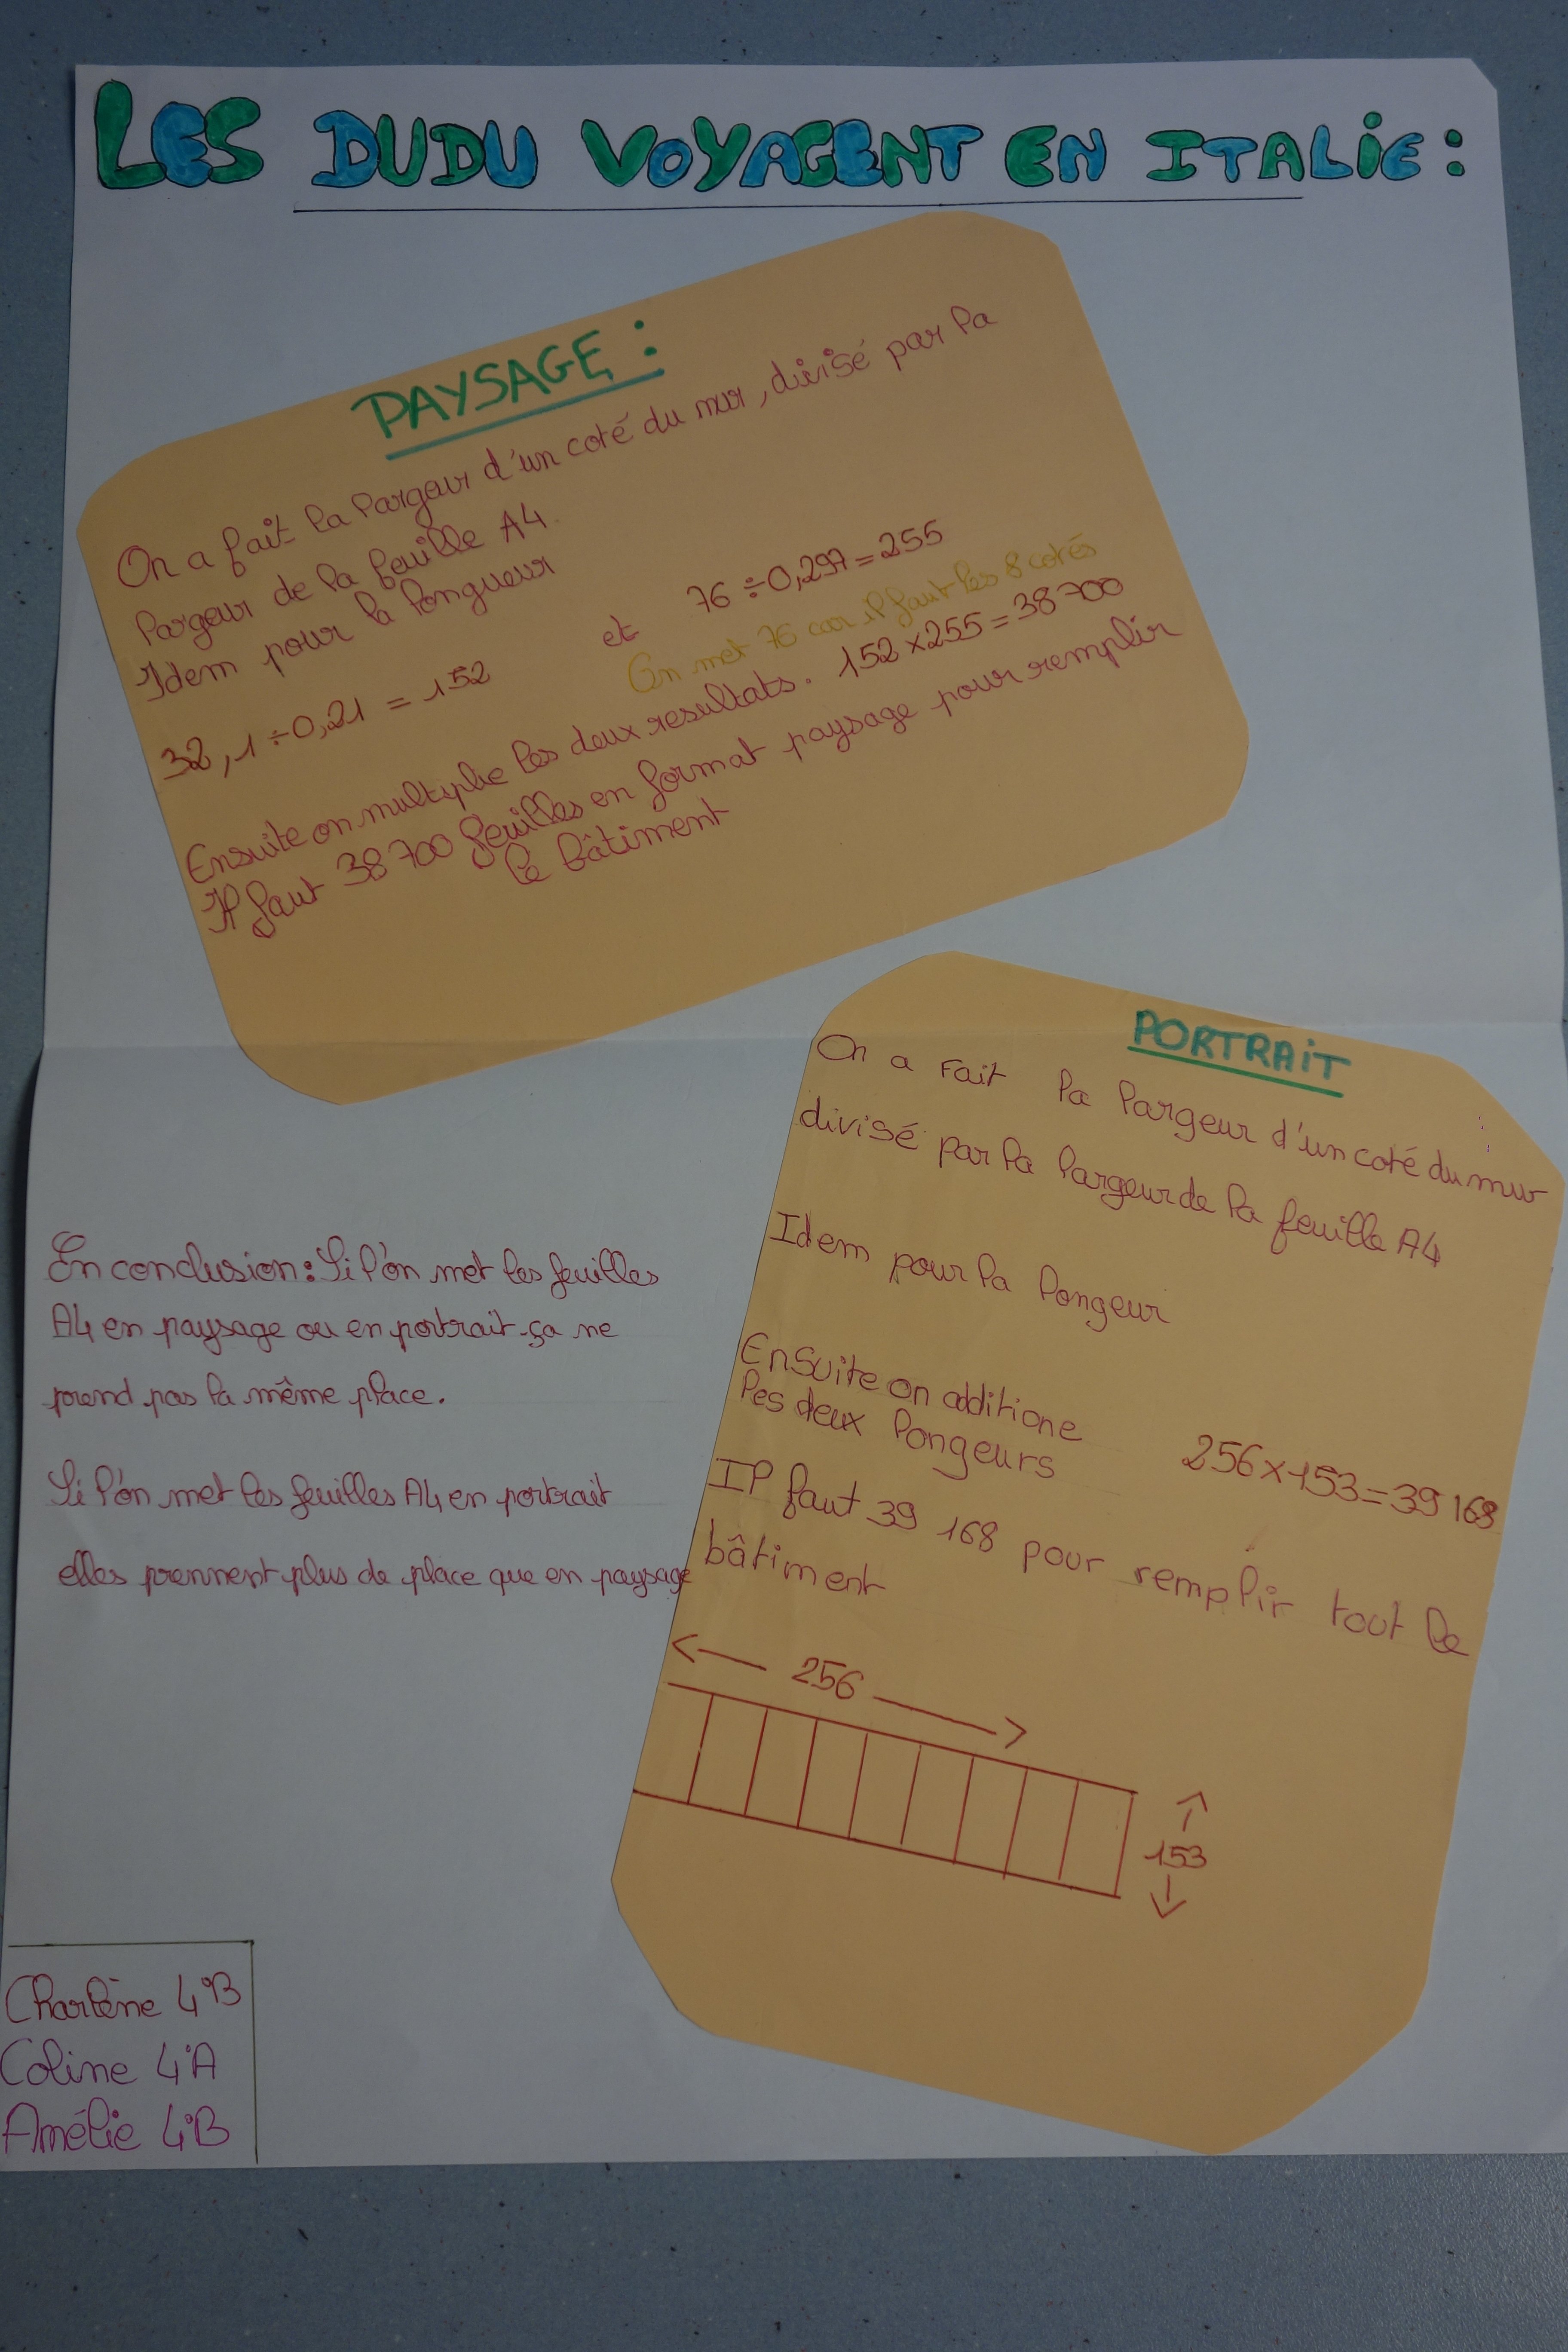 LES DUDU VOYAGENT EN ITALIE :
PAYSAGE :
On a fait la largeur d'un coté du mur, divisé par la
largeur de la feuille A4.
Idem pour la longueur
32,1 ÷ 0,21 = 152 et 76 ÷ 0,297 = 255
On met 76 car il faut les 8 cotés
Ensuite on multiplie les deux resultats. 152 x 255 = 38 700
Il faut 38 700 feuilles en format paysage pour remplir
le bâtiment
PORTRAIT
On a Fait la largeur d'un coté du mur
divisé par la largeur de la feuille A4
Idem pour la longeur
Ensuite on additione
les deux longeurs
256 x 153 = 39 168
Il faut 39 168 pour remplir tout le
bâtiment
256
153
En conclusion : Si l'on met les feuilles
A4 en paysage ou en portrait ça ne
prend pas la même place.
Si l'on met les feuilles A4 en portrait
elles prennent plus de place que en paysage
Charlène 4°B
Coline 4°A
Amélie 4°B